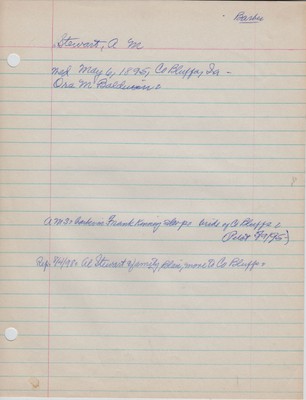 Barber
Stewart, A M
Mad May 6, 1895, Co Bluffs, Ia -
Ora M Baldwin.
A M is Frank Kenny shops bride of Co Bluffs,
(Pilot
Rep. 9/4/98. Al Stewart & family, move to Co Bluffs.